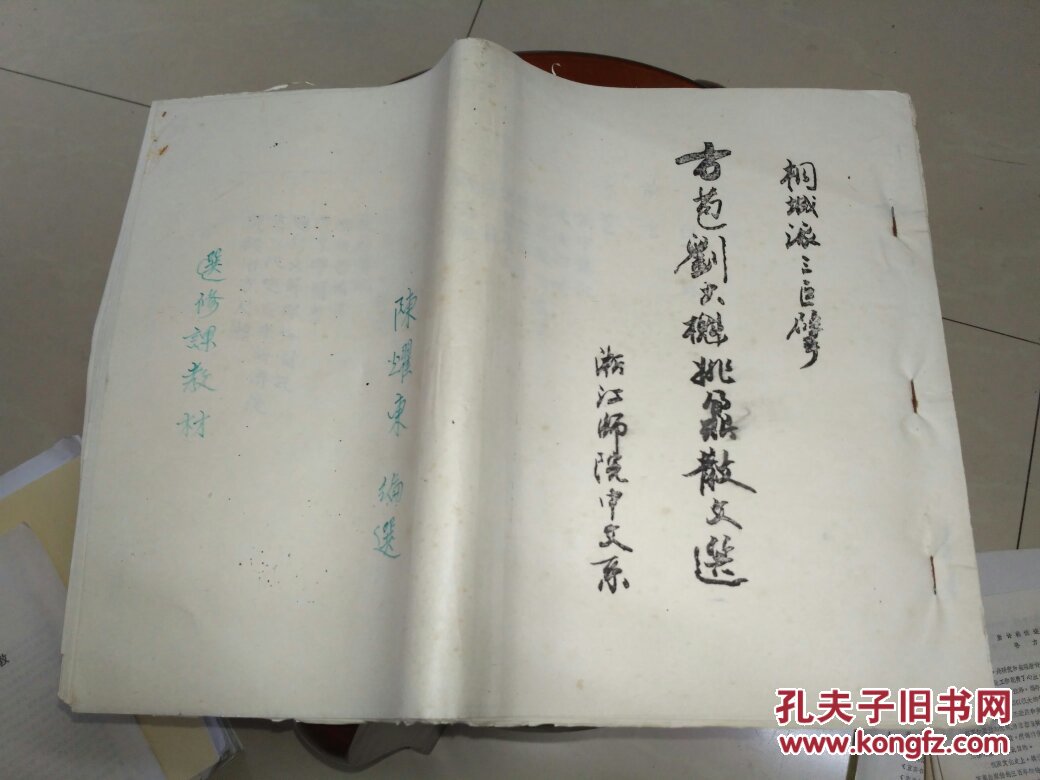 桐城派三巨擘
方苞劉大櫆姚鼐散文選
浙江師院中文系
陳耀東 编選
選修課教材
孔夫子旧书网
www.kongfz.com